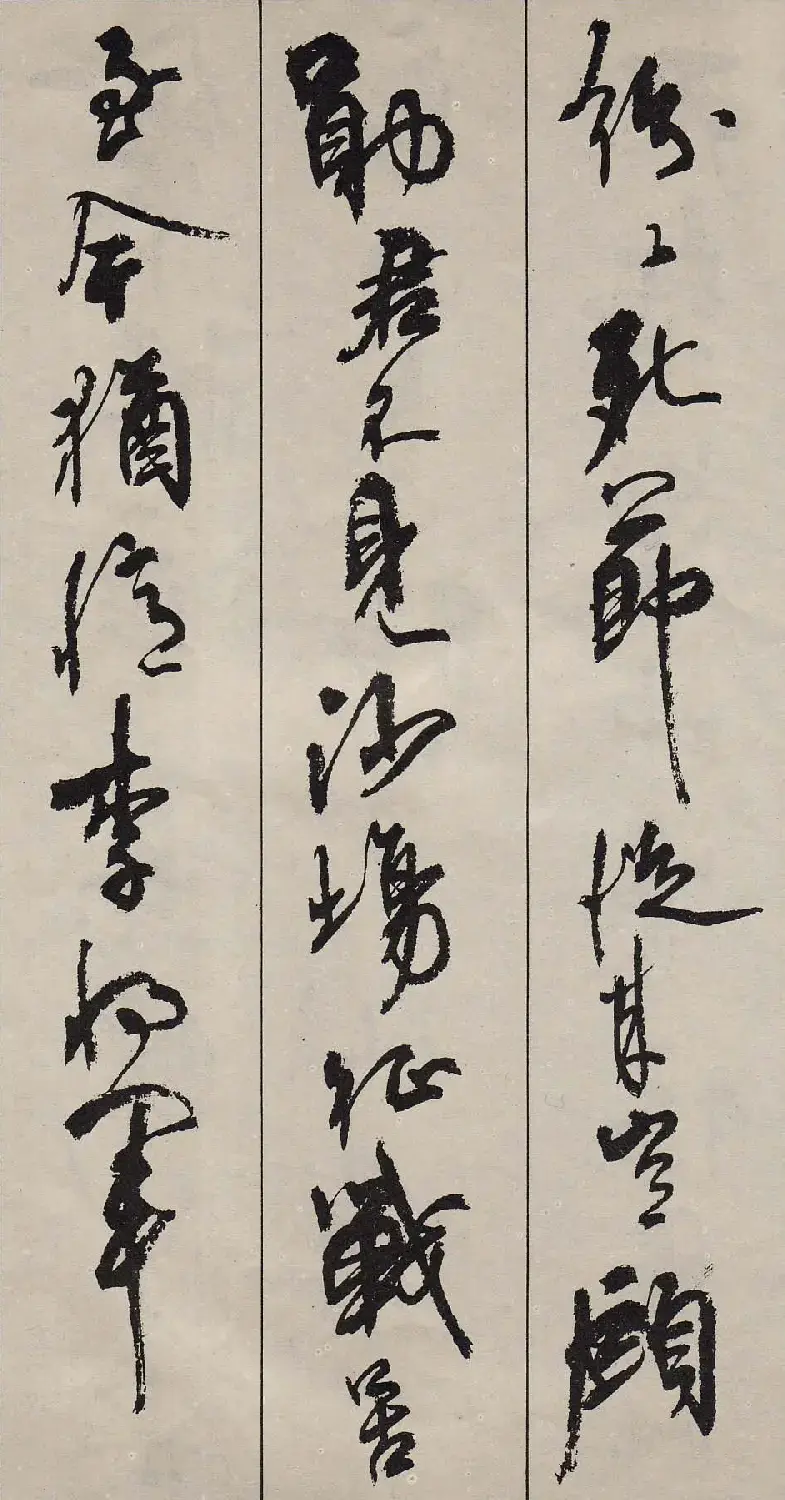 紛〻死節從來豈顧
勛君不見沙場征戰苦
至今猶憶李將軍